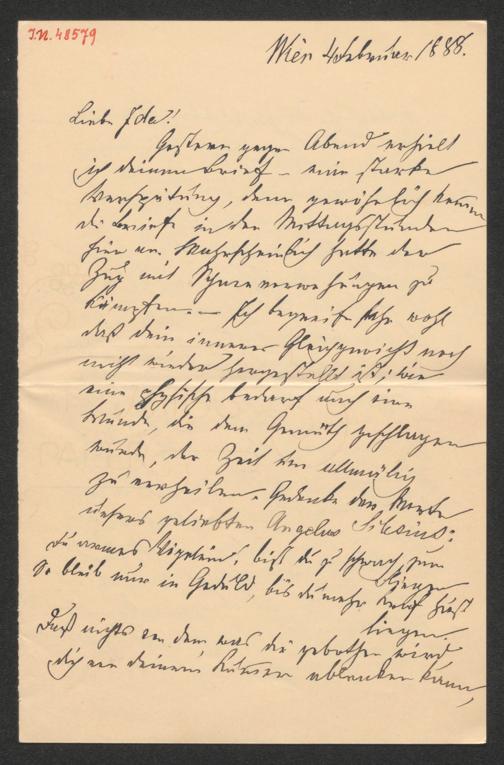 J.N. 48579
Wien 4 Februar 1888.
Liebe Ida!
Gestern gegen Abend erhielt
ich deinen Brief – eine starke
Verspätung, denn gewöhnlich kommen
die Briefe in den Mittagsstunden
hier an. Wahrscheinlich hatte der
Zug mit Schneeverwehungen zu
kämpfen. – Ich begreife sehr wohl
daß dein inneres Gleichgewicht noch
nicht wieder hergestellt ist; wie
eine physische bedarf auch eine
Wunde, die dem Gemüth geschlagen
wurde, der Zeit um allmälig
zu verheilen. Gedenke der Worte
unsers geliebten Angelus Silesius:
Du armes Vögelein, bist du zu schwach zum
Fliegen
So bleib nur in Geduld, bis du mehr Kraft hast
liegen.
Daß nichts von dem was dir gebothen wird
dich von deinem Kummer ablenken kann,